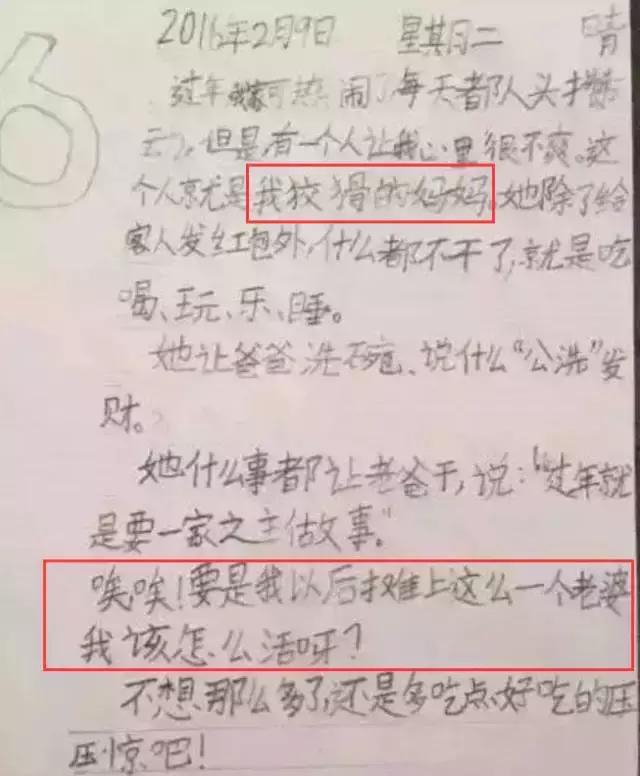 6
2016年2月9日 星期二 晴
过年我家可热闹了每天都人头攒
动，但是，有一个人让我心里很不爽。这
个人就是我狡猾的妈妈，她除了给
客人发红包外，什么都不干了，就是吃
喝、玩、乐、睡。
她让爸爸洗碗、说什么“公洗”发
财。
她什么事都让老爸干，说：“过年就
是要一家之主做事。”
唉唉！要是我以后摊上这么一个老婆
我该怎么活呀？
不想那么多了，还是多吃点好吃的压
压惊吧！